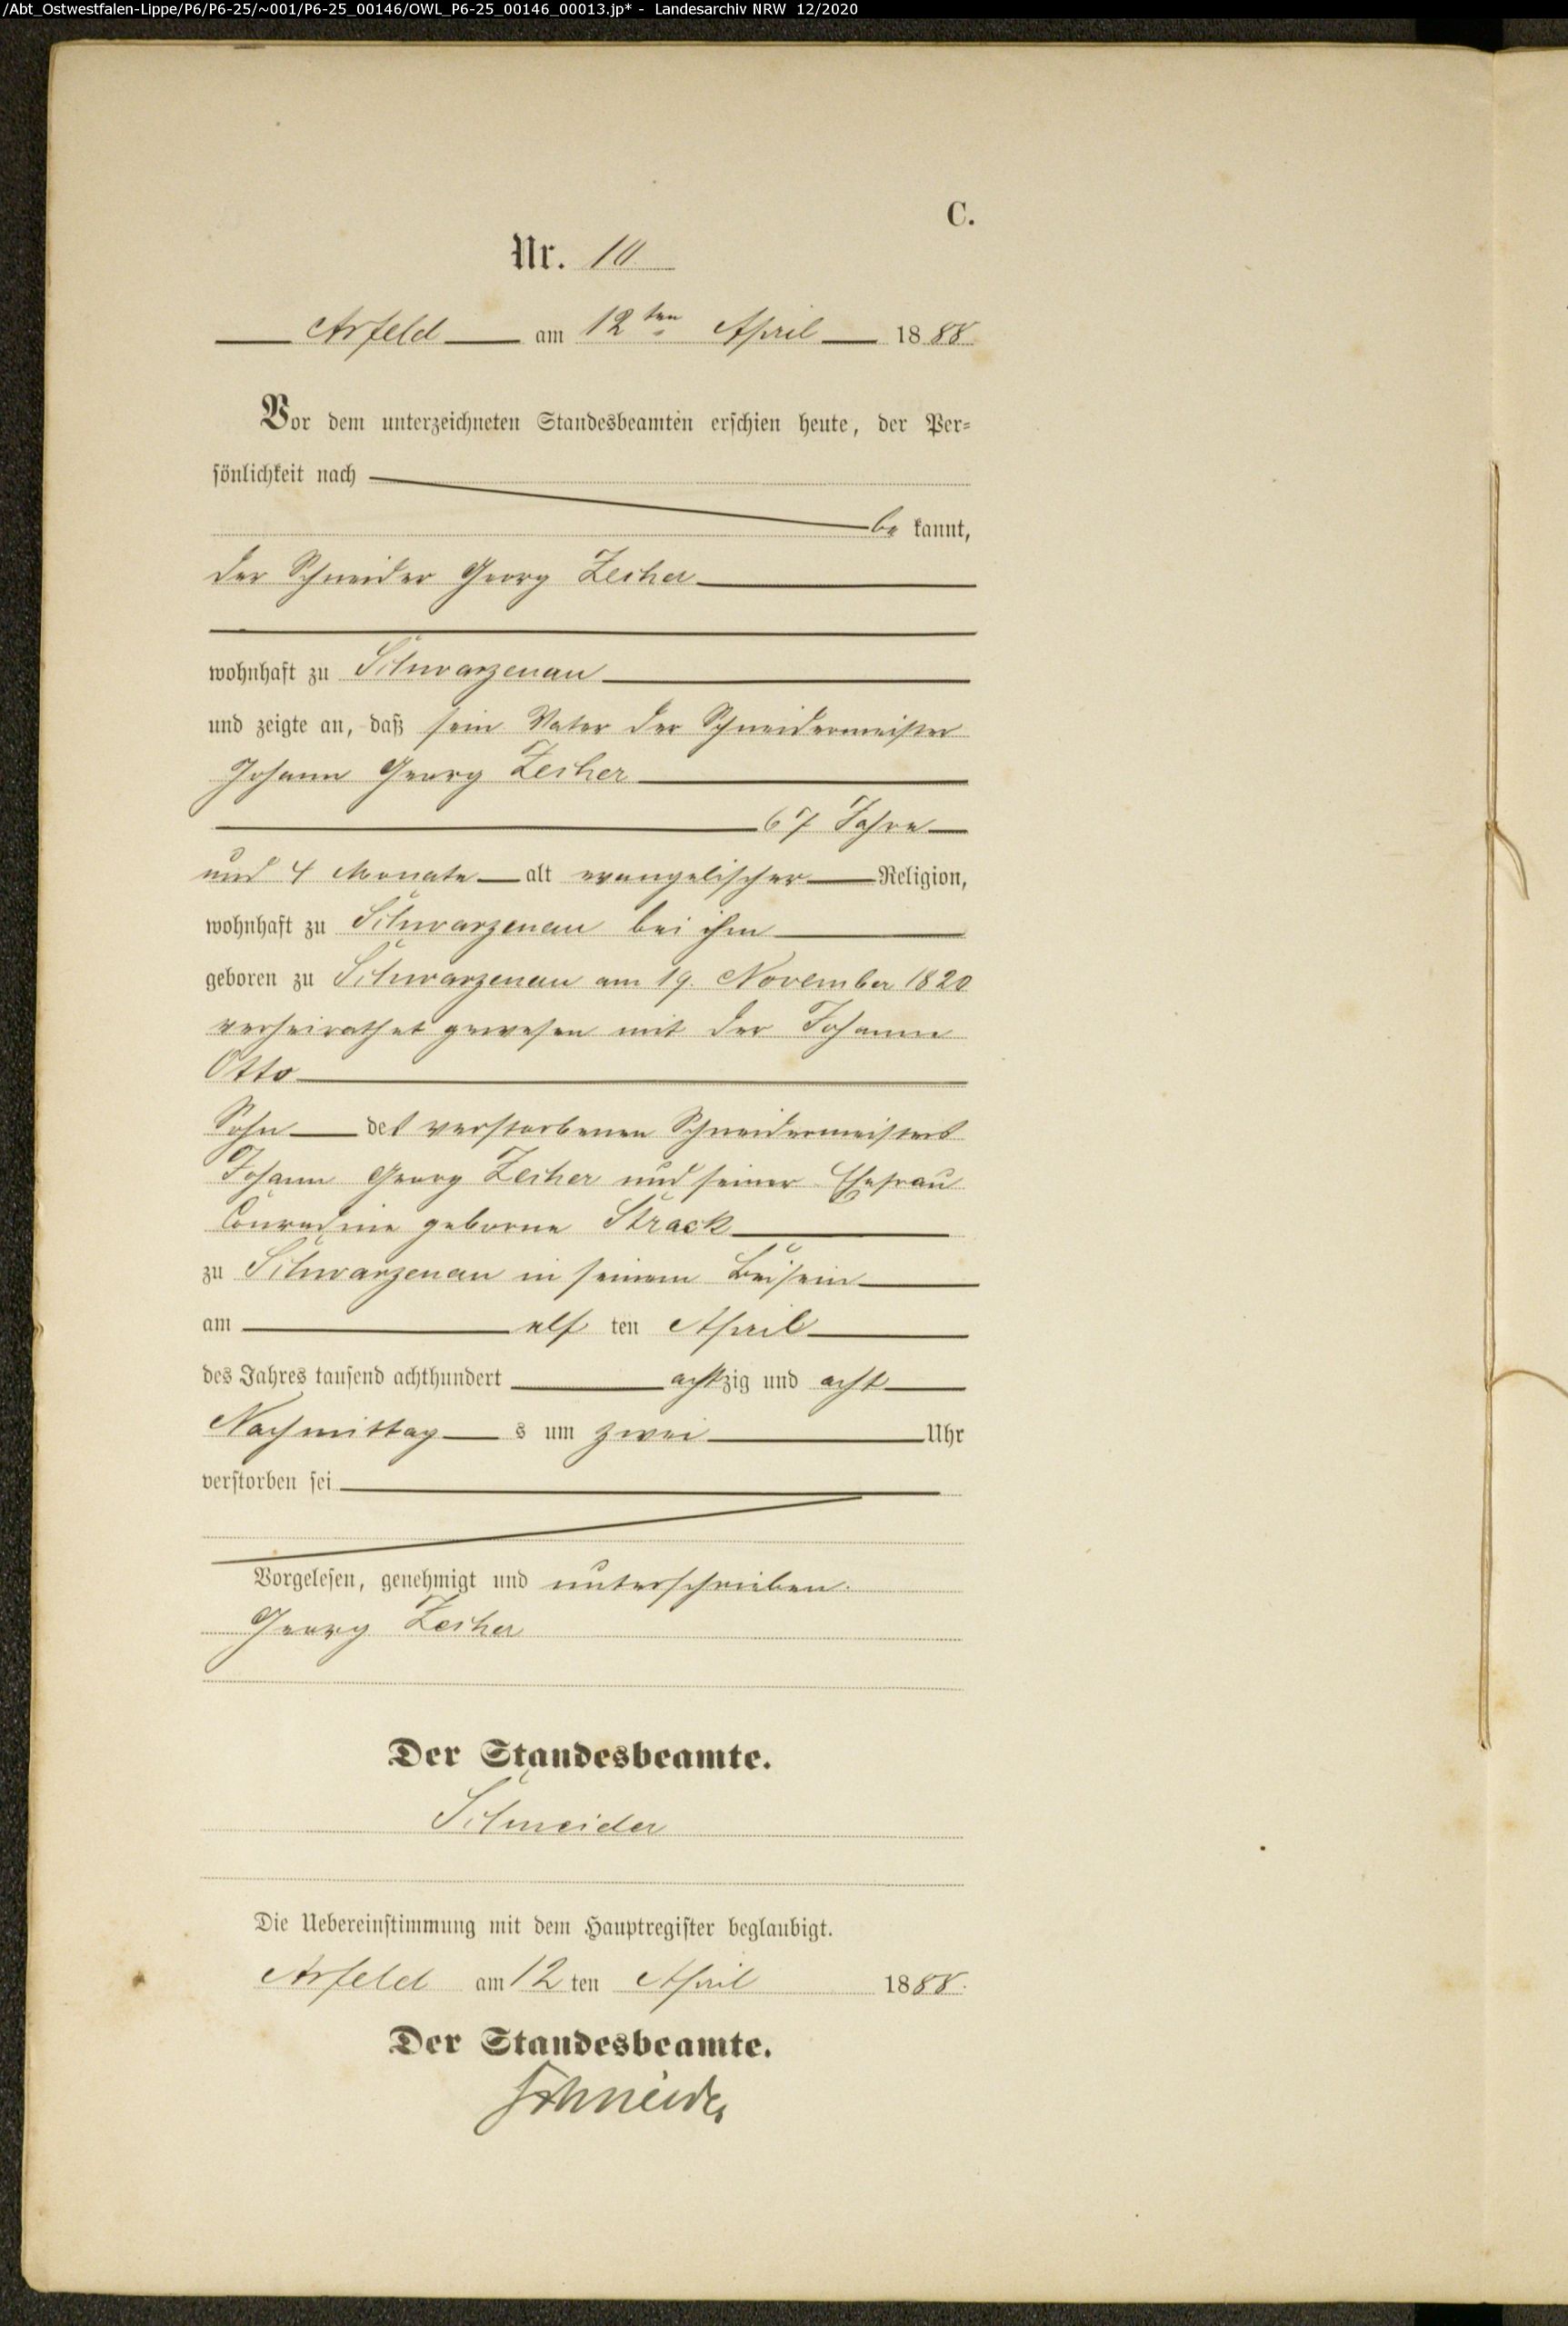 /Abt_Ostwestfalen-Lippe/P6/P6-25/~001/P6-25_00146/OWL_P6-25_00146_00013.jp* - Landesarchiv NRW 12/2020
C.
Nr. 10
Arfeld am 12ten April 1888
Vor dem unterzeichneten Standesbeamten erschien heute, der Per-
sönlichkeit nach
be kannt,
der Schneider Georg Zecher
wohnhaft zu Schwarzenau
und zeigte an, daß sein Vater der Schneidermeister
Johann Georg Zecher
67 Jahre
und 4 Monate alt evangelischer Religion,
wohnhaft zu Schwarzenau bei ihm
geboren zu Schwarzenau am 19. November 1820
verheirathet gewesen mit der Johanne
Otto
Sohn des verstorbenen Schneidermeisters
Johann Georg Zecher und seiner Ehefrau
geborne Strack
zu Schwarzenau in seinem Beisein
am elf ten April
des Jahres tausend achthundert achtzig und acht
Nachmittag s um zwei Uhr
verstorben sei
Vorgelesen, genehmigt und unterschrieben.
Georg Zecher
Der Standesbeamte.
Schneider
Die Uebereinstimmung mit dem Hauptregister beglaubigt.
Arfeld am 12 ten April 1888.
Der Standesbeamte.
Schneider